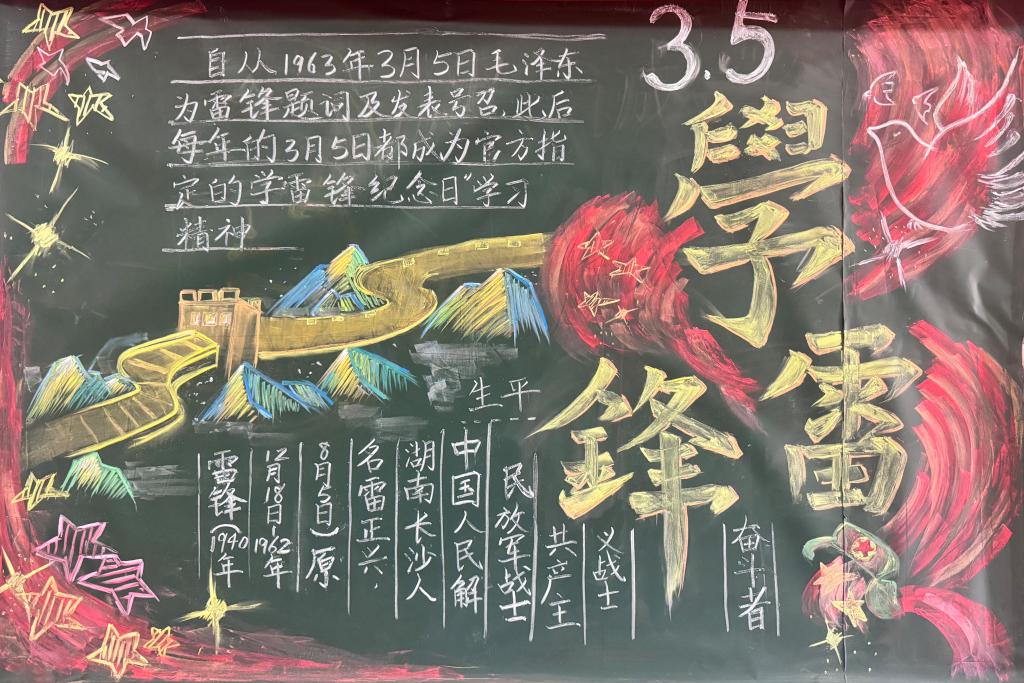 自从1963年3月5日毛泽东
为雷锋题词及发表号召,此后
每年的3月5日都成为官方指
定的学雷锋纪念日"学习
精神
3.5
學
雷
鋒
生平
雷锋(1940年
12月18日-1962年
8月5日)原
名雷正兴,
湖南长沙人
中国人民解
民放军战士
共产主
义战士
奋斗者